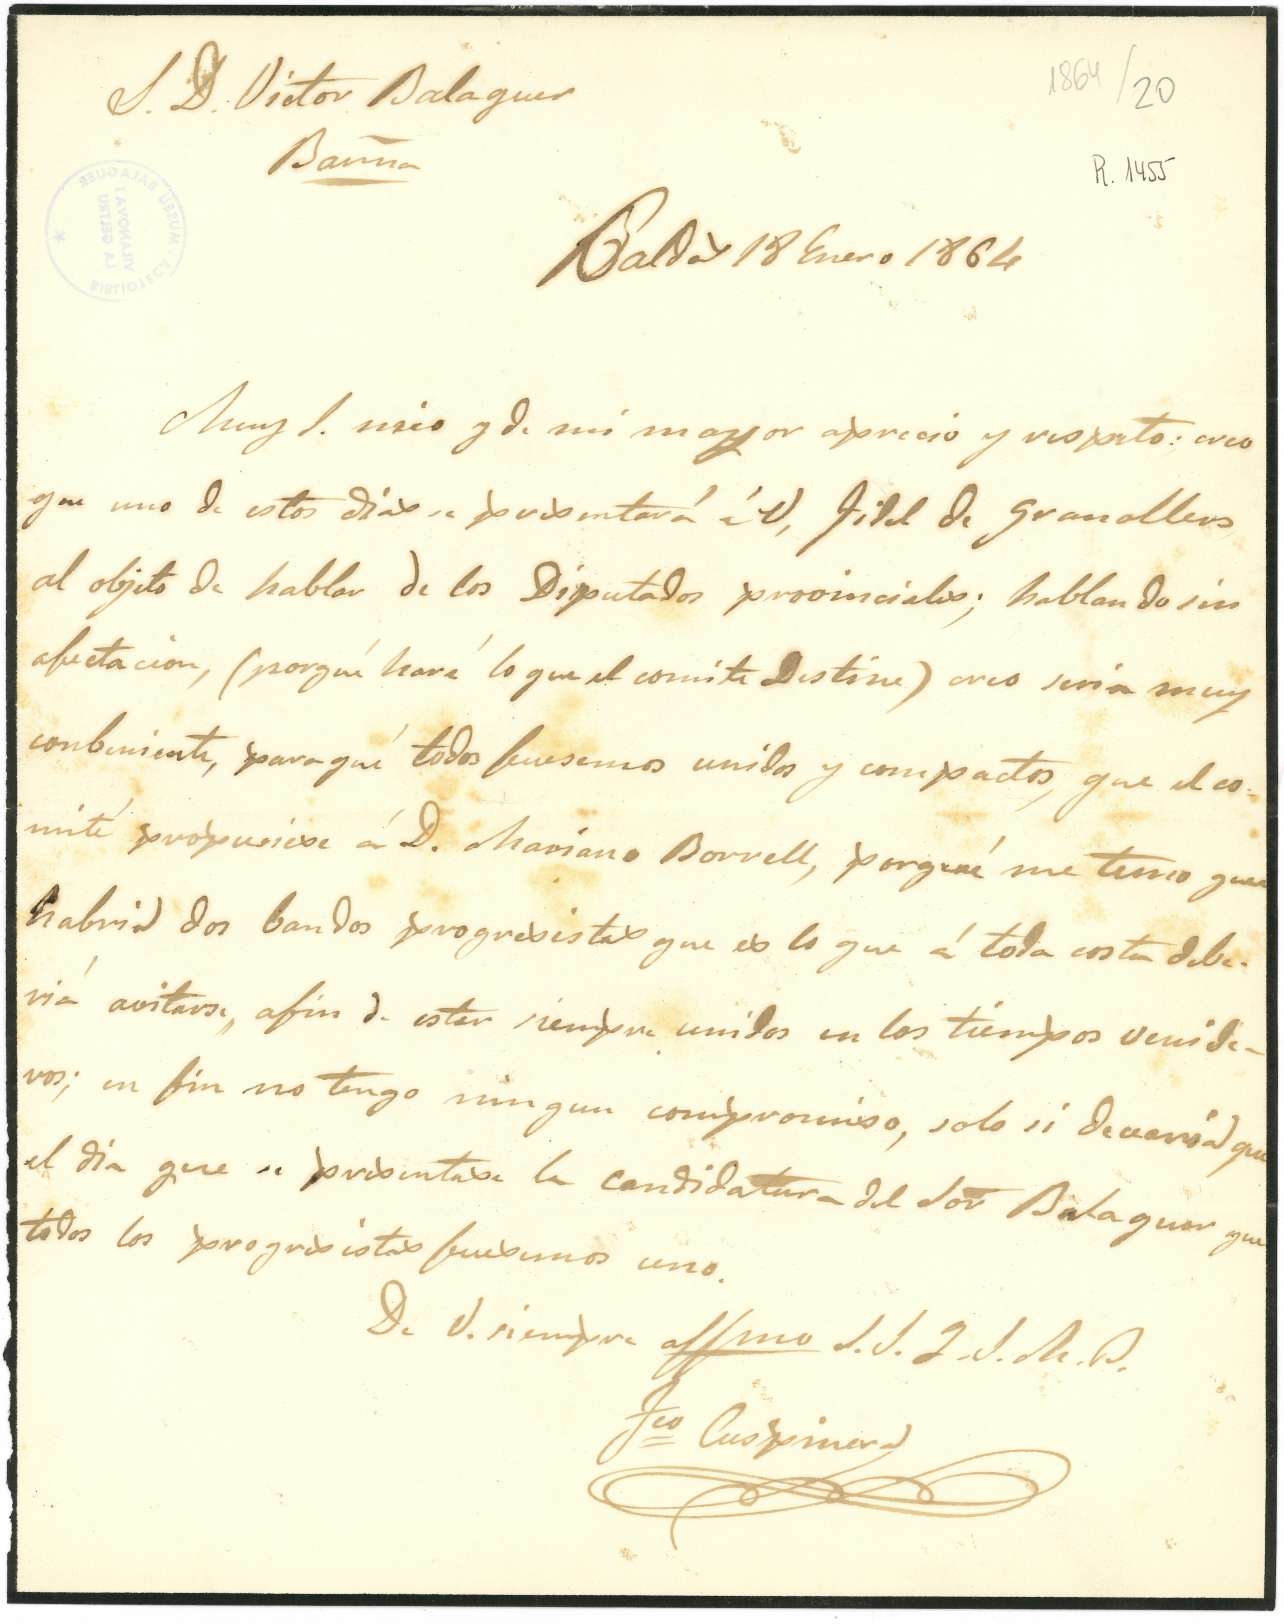 1864/20
S. D. Victor Balaguer
Barña
R. 1455
BIBLIOTECA MUSEU BALAGUER
VILANOVA I
LA GELTRU
Caldas 18 Enero 1864
Muy S. mio y de mi mayor aprecio y respeto; creo
que uno de estos dias se presentará á V, Fidel de Granollers,
al objeto de hablar de los Diputados provinciales; hablando sin
afectacion, (porqué haré lo que el comite Destine) creo seria muy
conbeniente, paraqué todos fuesemos unidos y compactos, que el co-
mité propusiese á D. Mariano Borrell, porqué me temo que
habria dos bandos progresistas que es lo que á toda costa debe-
riá avitarse, afin de estar siempre unidos en los tiempos venide-
ros; en fin no tengo ningun compromiso, solo si decearia que
el dia que se presentase la candidatura del Sor Balaguer que
todos los progresistas fuesemos uno.
De V. siempre affmo S. S. Q. S. M. B.
Fco Cuspinera